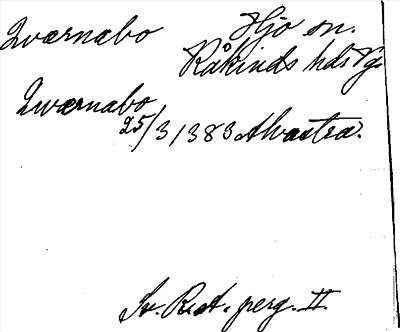 Qvarnabo Hjo sn.
Råkinds hds Vg.
Qwarnabo
25/3 1383 Alvastra.
Sv. Rik. perg. II.